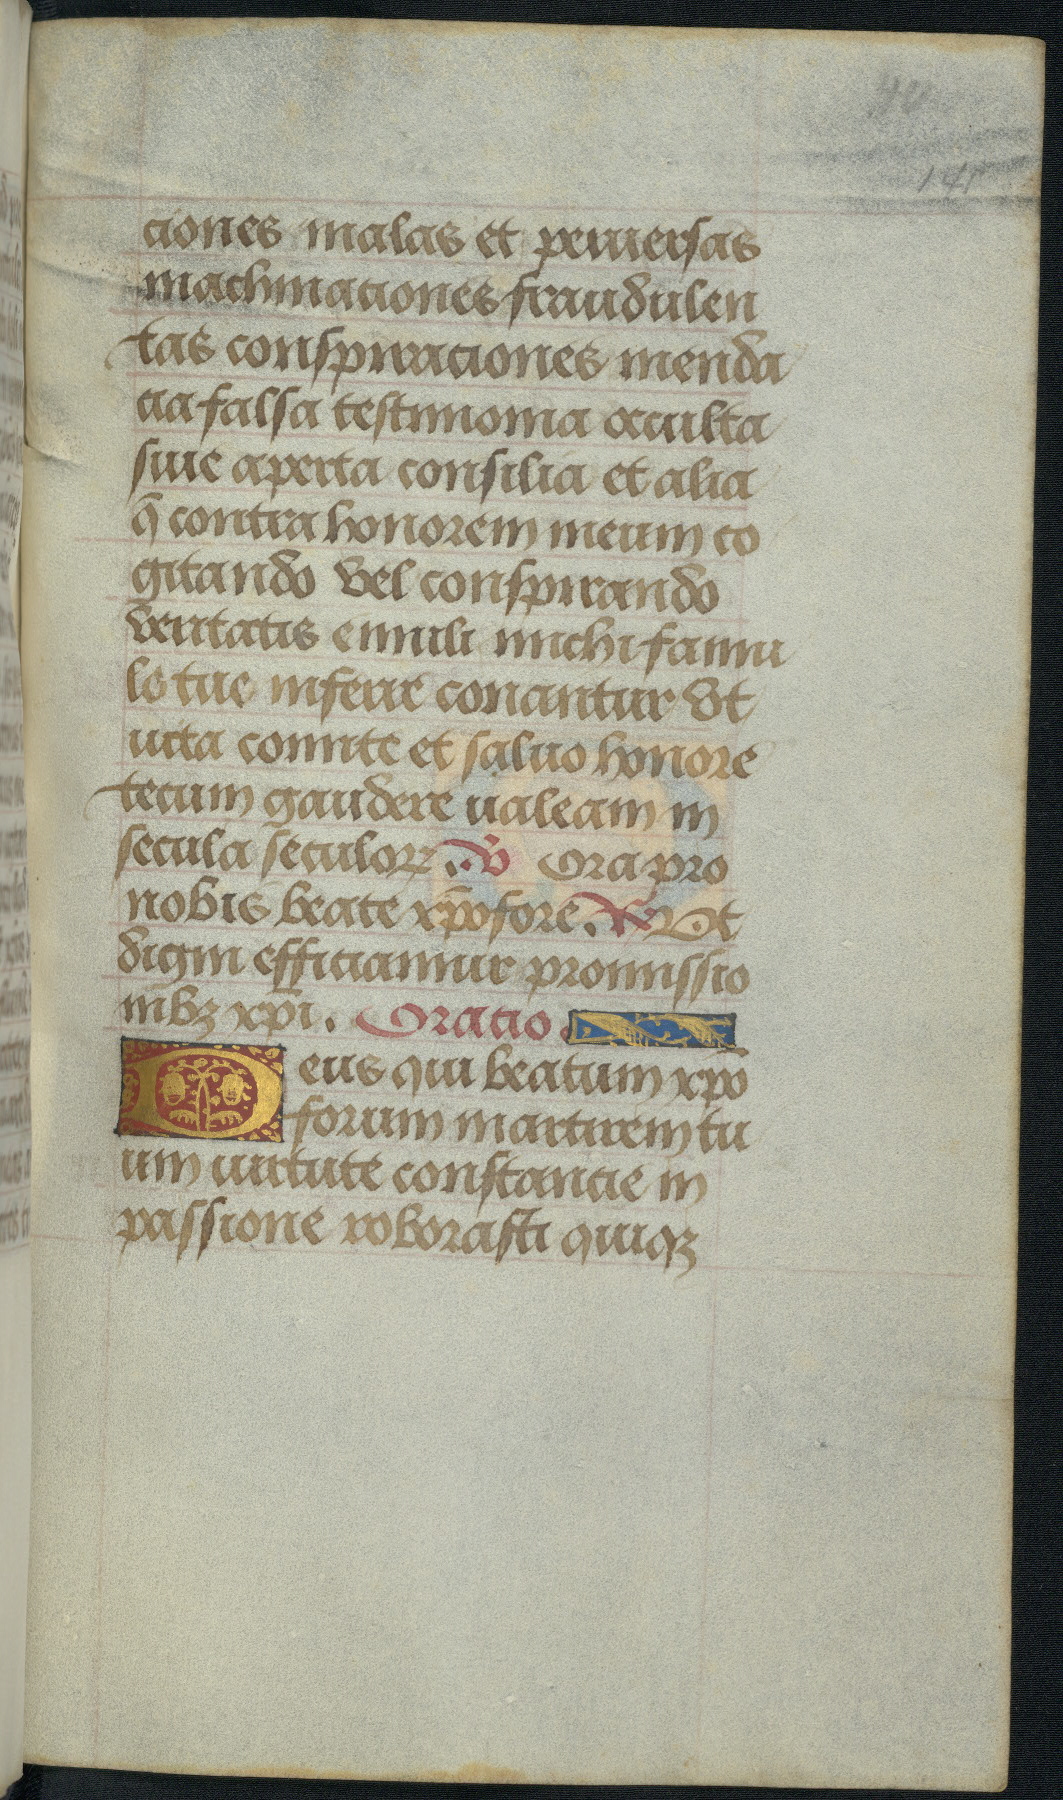 ciones malas et peruersas
machinaciones fraudulen
tas conspiraciones menda
cia falsa testimonia occulta
siue aperta consilia et alia
q̄ contra honorem meum co
gitando vel conspirando
veritatis emuli michi famu
lo tue inferre conantur Vt
uita comite et saluo honore
tecum gaudere ualeam in
secula seculoꝝ. ℣ Ora pro
nobis beate xp̄ofore. ℟ Vt
digni efficiamur promissio
nibꝫ xp̄i. Oratio
Deus qui beatum xp̄o
forum martirem tu
um uirtute constancie in
passione roborasti quiqꝫ